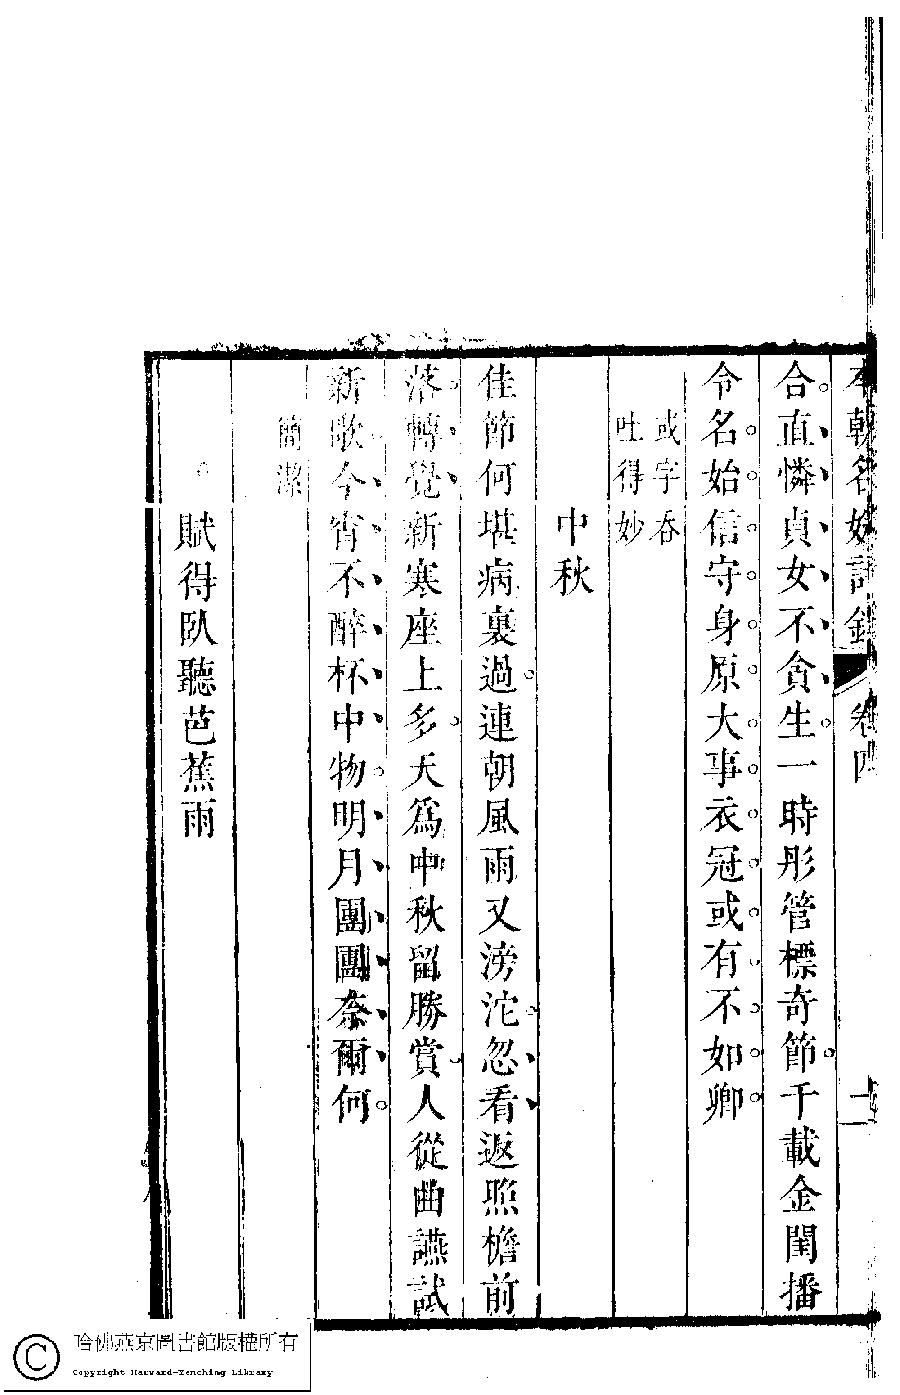 本朝名媛詩鈔 卷四 十一
合直憐貞女不貪生一時彤管標奇節千載金閨播
令名始信守身原大事衣冠或有不如卿
或字吞
吐得妙
中秋
佳節何堪病裏過連朝風雨又滂沱忽看返照檐前
落轉覺新寒座上多天爲中秋留勝賞人從曲讌試
新歌今宵不醉杯中物明月團團奈爾何
簡潔
賦得臥聽芭蕉雨
哈佛燕京圖書館版權所有
Copyright Harvard-Yenching Library